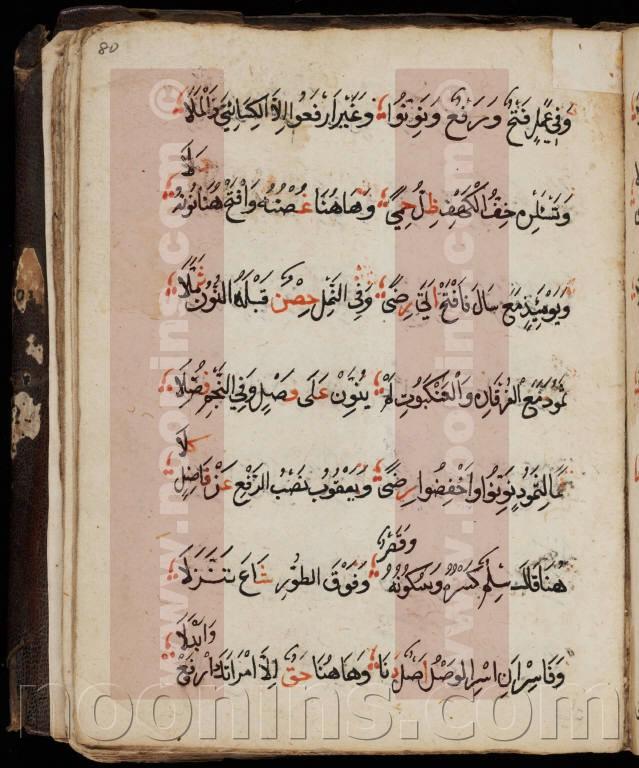 80
وَفِي عَمَلٌ فَتْحٌ وَرَفْعٌ وَنَوِّنُوا وَغَيْرَ ارْفَعُوا إِلَّا الْكِسَائِيَّ ذَا الْمَلَا
وَتَسْأَلْنِ خِفُّ الْكَهْفِ ظِلٌّ حِمًى وَهَاهُنَا غُصْنُهُ وَافْتَحْ هُنَا نُونَهُ
دَلَا
وَيَوْمَئِذٍ مَعْ سَالَ فَافْتَحْ أَتَى رِضًى وَفِي النَّمْلِ حِصْنٌ قَبْلَهُ النُّونُ ثُمِّلَا
ثَمُودَ مَعَ الْفُرْقَانِ وَالْعَنْكَبُوتِ لَمْ يُنَوَّنْ عَلَى فَصْلٍ وَفِي النَّجْمِ فُصِّلَا
نَمَا لِثَمُودٍ نَوِّنُوا وَاخْفِضُوا رِضًى وَيَعْقُوبُ نَصْبُ الرَّفْعِ عَنْ فَاضِلٍ
كَلَا
هُنَا قَالَ سِلْمٌ كَسْرُهُ وَسُكُونُهُ وَقَصْرٌ وَفَوْقَ الطُّورِ شَاعَ تَنَزُّلَا
وَفَاسْرِ أَنِ اسْرِ الْوَصْلُ أَصْلٌ دَنَا وَهَاهُنَا حَقٌّ إِلَّا امْرَأَتَكَ ارْفَعْ
وَأَبْدِلَا
www.noonins.com
www.noonins.com
noonins.com